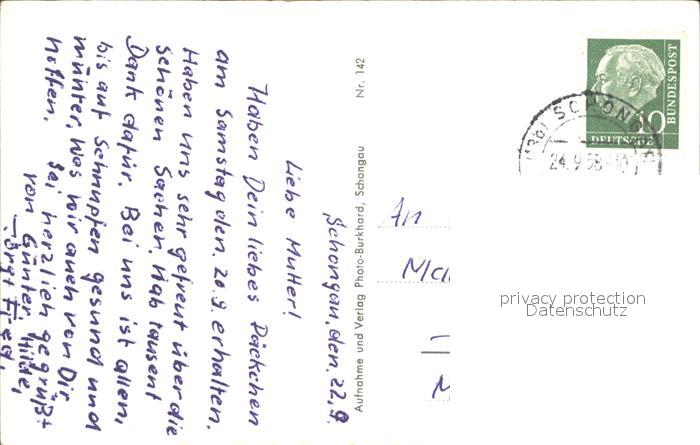 Schongau, den. 22.9.
Liebe Mutter!
Haben Dein liebes Päckchen
am Samstag den. 20.9. erhalten.
Haben uns sehr gefreut über die
schönen Sachen. Hab tausent
Dank dafür. Bei uns ist allen,
bis auf Schnupfen gesund und
munter, Was wir auch von Dir
hoffen. Sei herzlich gegrüßt
von Günter, Hilde,
Fried.
Aufnahme und Verlag Photo-Burkhard, Schongau Nr. 142
DEUTSCHE
BUNDESPOST
(13b) SCHONG
24.9.58-10
An
privacy protection
Datenschutz